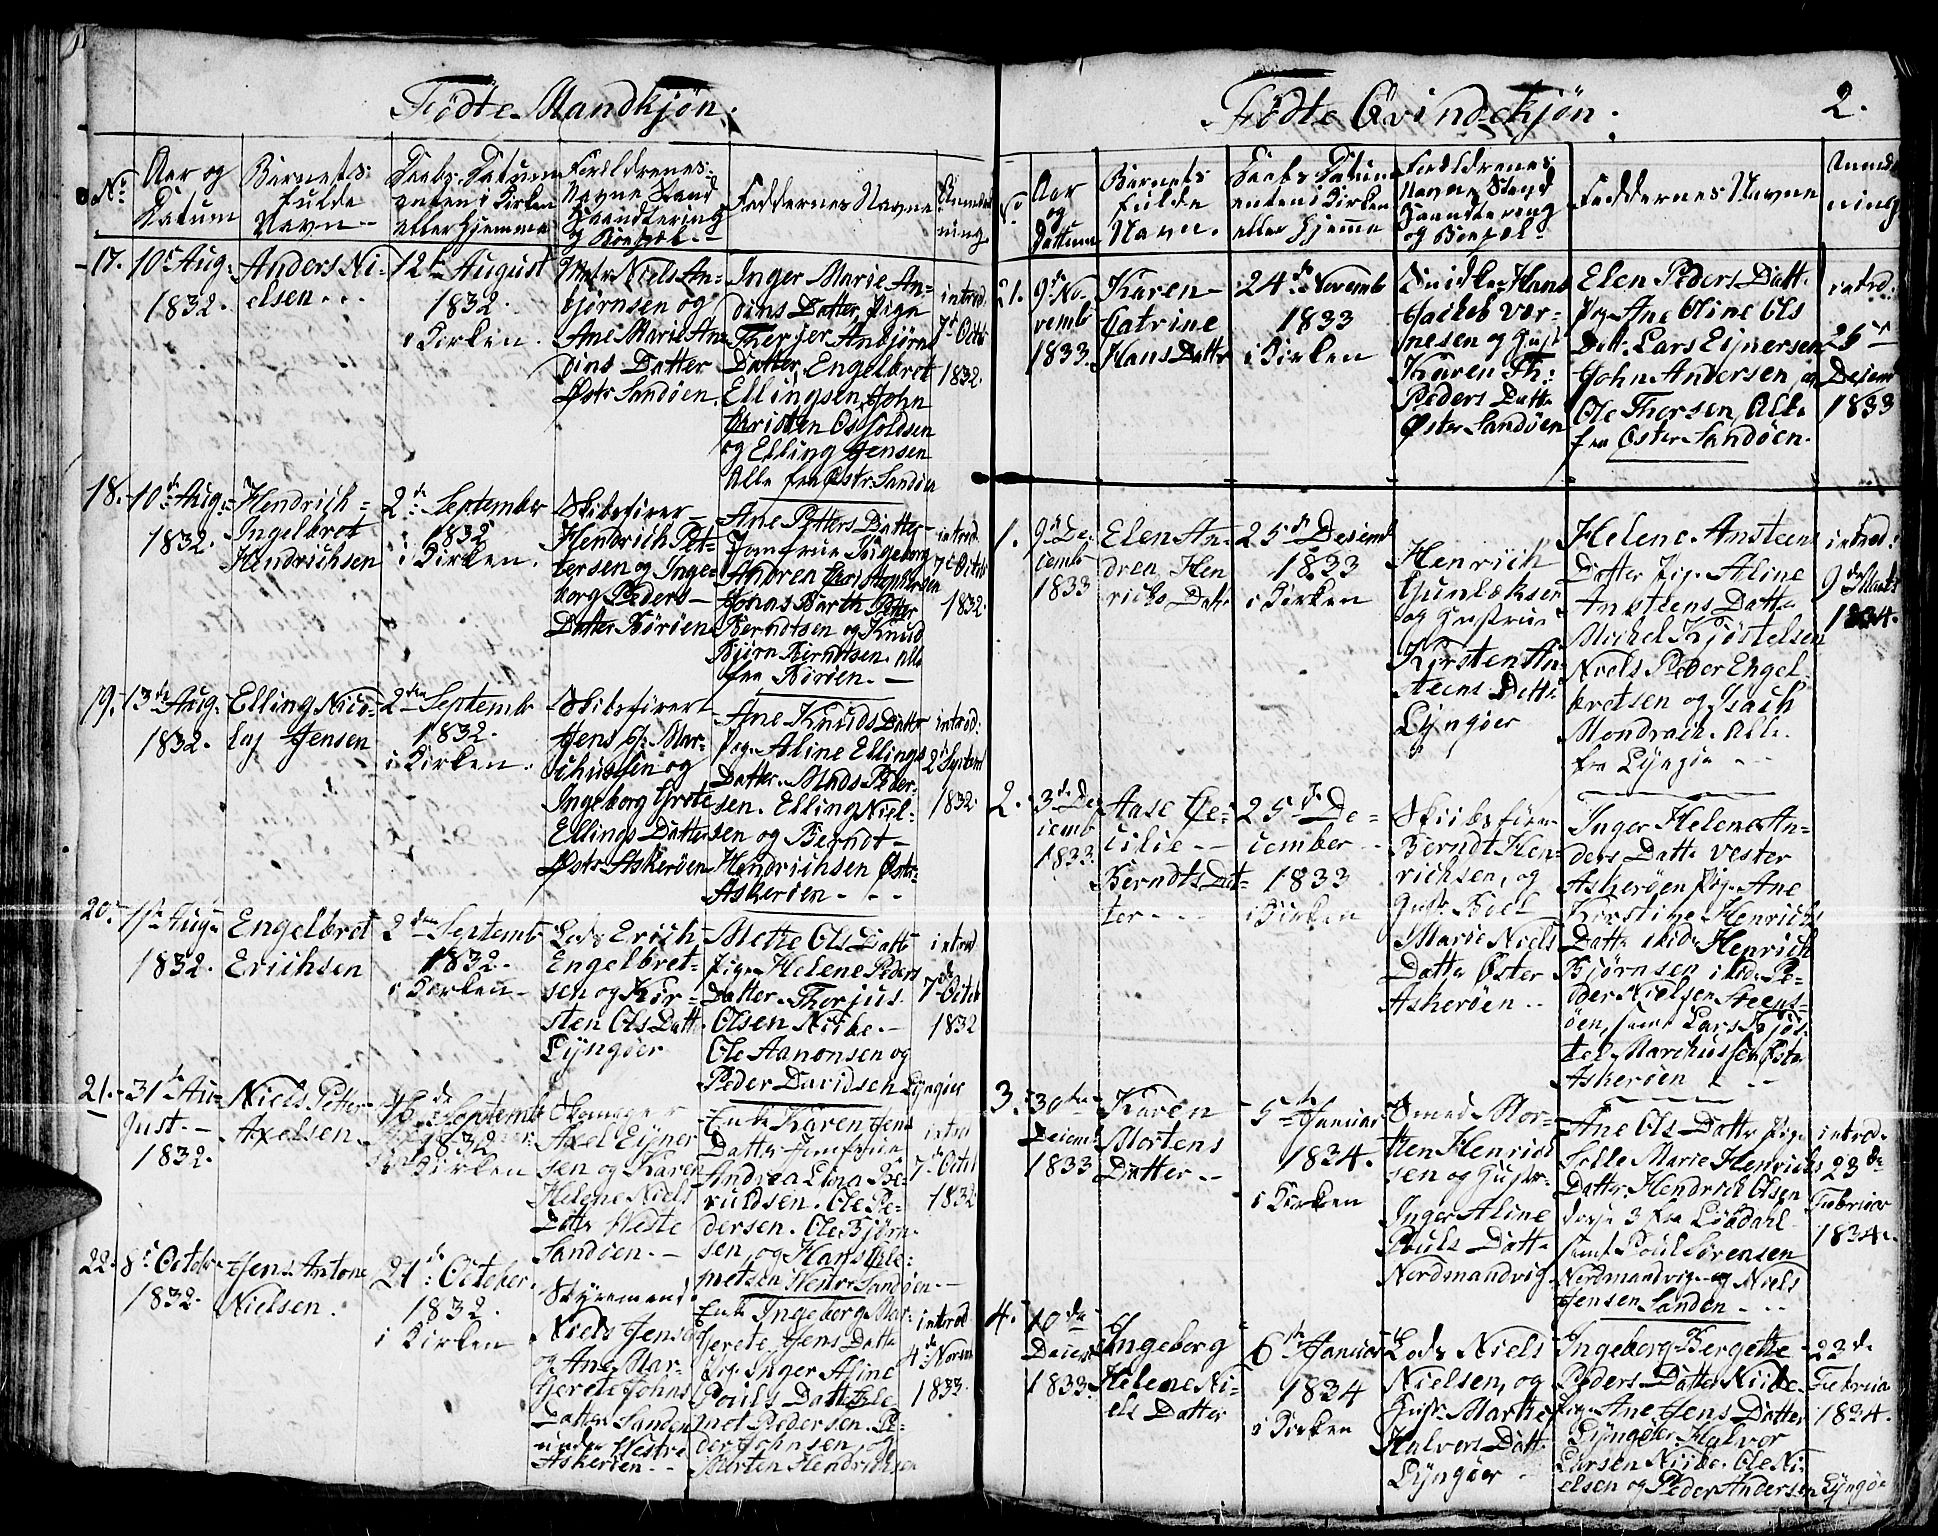 Fødte Mandkjøn.
No
Aar og
Datum
Barnets
fulde
Navn
Daabs Datum
enten i Kirken
eller Hjemme
Forældrenes
Navne Stand
Haandtering
og Boepæl.
Faddernes Navne
Anmærk
ning.
17.
10de Aug:
1832.
Anders Ni-
elsen
12te August
1832.
i Kirken.
Niels An-
bjørnsen og
Ane Marie An-
dins Datter
Østr Sandøen.
Inger Marie An-
dins Datter, Pige
Anbjørns
Datter, Engelbret
Ellingsen, John
Christen
og Elling Jensen
Alle fra Østr Sandøen
introd.
7de Octb
1832.
18.
10de Aug:
1832.
Hendrich
Ingelbrot
Hendrichsen
2den September
1832
i Kirken.
Skibsfører
Hendrich Pet-
tersen og Inge-
borg Peders
Datter Borøen
Ane Petters Datter
Jomfrue Ingeborg
Jonas Barth Petter
Berndtsen og Knud
Bjørn Berndtsen. alle
fra Borøen.
introd
7de Octob
1832.
19.
13de Aug.
1832.
Elling Nico-
laj Jensen
2den Septembr
1832.
i Kirken.
Skibsfører
Jens
og
Ingeborg Grete
Ellings Datter
Østr Askerøen
Ane Knuds Datter
Pige Aline Ellings
Datter. Mads Peder-
sen. Elling Niel-
sen og Berndt
Hendrichsen Østr
Askerøen.
introd:
2den Septem
1832.
20.
Aug
1832.
Engelbret
Erichsen
2den Septemb
1832.
i Kirken
Lods Erich
Engelbret-
sen og Kir-
sten Ols Datt
Lyngøer
Mette Ols Datt
Pige Helene Peders
Datter. Therjus
Olsen Niibe.
Ole Aanonsen og
Peder Davidsen Lyngøer
introd
7de Octob
1832
21.
31te Au-
gust.
1832.
Niels Petter
Axelsen.
16de Septemb
1832
i Kirken
Axel Ejner
sen og Karen
Helene Niels
Datter Westr
Sandøen.
Enke Karen Jens
Datter Jomfrue
Andrea Lina Be-
ruldsen. Ole Pe-
dersen. Ole Bjørn-
sen, og Hans Cle-
metsen Westre Sandøen
introd
7de Octob
1832
22.
8de Octobr
1832.
Jens Antone
Nielsen.
21de October.
1832.
i Kirken
Styrmand
Niels Jensen
og Ane Mar-
grete Johns
Datter Sanden
under Westre
Askerøen.
Enke Ingeborg Mar-
grete Jens Datter
Pige Inger Aline
Pouls Datter Cle-
met Pedersen. Pe-
der Johnsen, og
Morten Hendrichsen
introd
4de Novem
1833.
Fødte Qvindekjøn.
2.
No
Aar
og
Dattum
Barnets
fulde
Navn.
Daabs Datum
enten i Kirken
eller Hjemme
Forældrenes
Navne Stand
Haandtering
og Boepæl
Faddernes Navne
Anmærk
ning
21.
9de No
vemb
1833.
Karen
Catrine
Hans Datter
24de Novemb
1833
i Kirken
Hans
Jackob Ver-
nesen og Hustr
Karen Th:
Peders Datt
Øster Sandøen
Elen Peders Datt.
Pige Ane Oline Ols
Datt. Lars Ejnersen
John Andersen, og
Ole Thorsen, Alle
fra Øster Sandøen.
introd:
26de
Decemb
1833
1.
9de De
cemb
1833
Elen An-
drea Hen
richs Datter
25de Desemb
1833
i Kirken
Henrich
Gunlækser
og Hustrue
Kirsten An-
steens Datt
Lyngøer
Helene Ansteens
Datter Pige Aline
Ansteens Datter
Mickel Kjøstelsen
Niels Peder Engel-
bretsen og Isach
Mondrach. Alle
fra Lyngøer
introd:
9de Marts
1834.
2.
3de De
cemb
1833.
Aase Ce-
cilie
Berndts Dat-
ter
25de De-
cember
1833
i Kirken
Skibsfører
Berndt Hen-
richsen, og
Hustr. Boel
Marie Niels
Datter Øster
Askerøen
Inger Helene An-
ders Datter Vester
Askerøen Pige Ane
Kirstine Henrichs
Datter ibid. Henrich
Bjørnsen ibid. Pe-
der Nielsen Steens-
øen, samt Lars Kjøs-
tel Marchussen Østr
Askerøen
3.
30te
Decemb
1833
Karen
Mortens
Datter
5te Januar
1834.
i Kirken
Smed Mor-
ten Henrich
sen og Hustr.
Inger Aline
Pouls Datt
Nordmandvig
Ane Ols Datter Pige
Marie Henrichs
Datter Hendrich Olsen
disse 3 fra Løvdahl
samt Poul Sørensen
Nordmandvig og Niels
Jensen Sanden
introd.
23de
Februar
1834.
4.
10de
Decemb
1833.
Ingeborg
Helene Ni-
els Datter
6te Januar
1834
i Kirken
Lods Niels
Nielsen, og
Hustr. Marthe
Halvors Datt
Lyngøer
Ingeborg Bergette
Peders Datter Niibe.
Pige Ane Jens Datter
Lyngøer Halvor
Larsen Niibe. Ole Ni-
elsen og Peder Andersen Lyngøer
23de
Februar
1834.